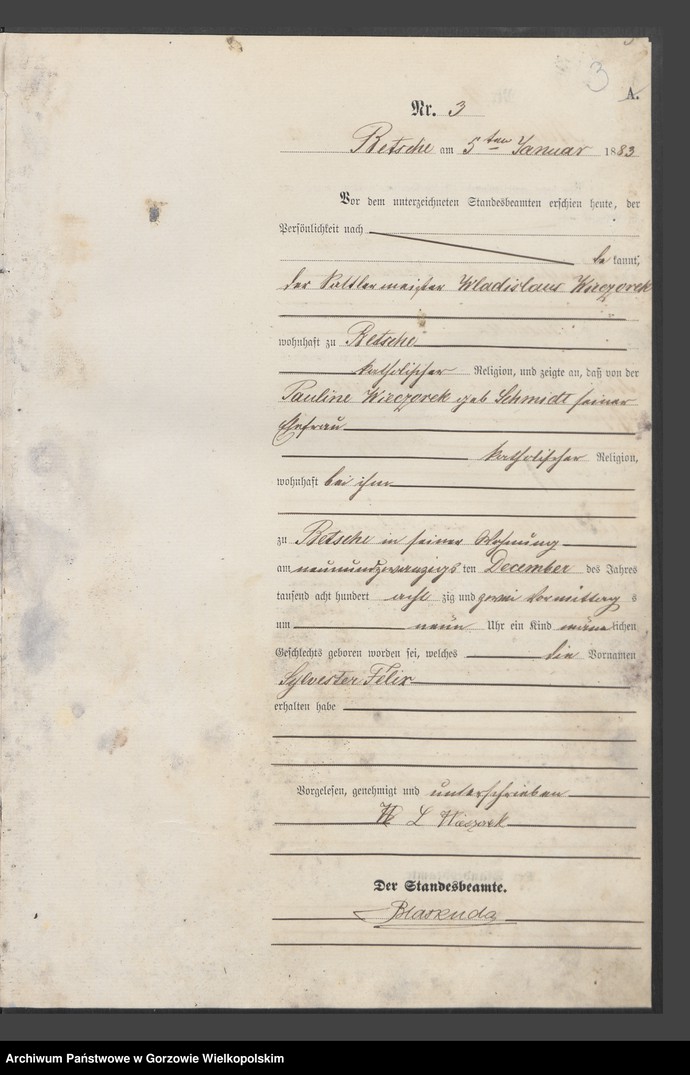 3
A.
Nr. 3
Betsche am 5ten Januar 1883
Vor dem unterzeichneten Standesbeamten erschien heute, der
Persönlichkeit nach
bekannt,
der Sattlermeister Wladislaus Wieczorek
wohnhaft zu Betsche
katholischer Religion, und zeigte an, daß von der
Pauline Wieczorek geb Schmidt seiner
Ehefrau
katholischer Religion,
wohnhaft bei ihm
zu Betsche in seiner Wohnung
am neunundzwanzigsten December des Jahres
tausend acht hundert acht zig und zwei Vormittags
um neun Uhr ein Kind männlichen
Geschlechts geboren worden sei, welches die Vornamen
Sylvester Felix
erhalten habe
Vorgelesen, genehmigt und unterschrieben
L Wieczorek
Der Standesbeamte.
Archiwum Państwowe w Gorzowie Wielkopolskim